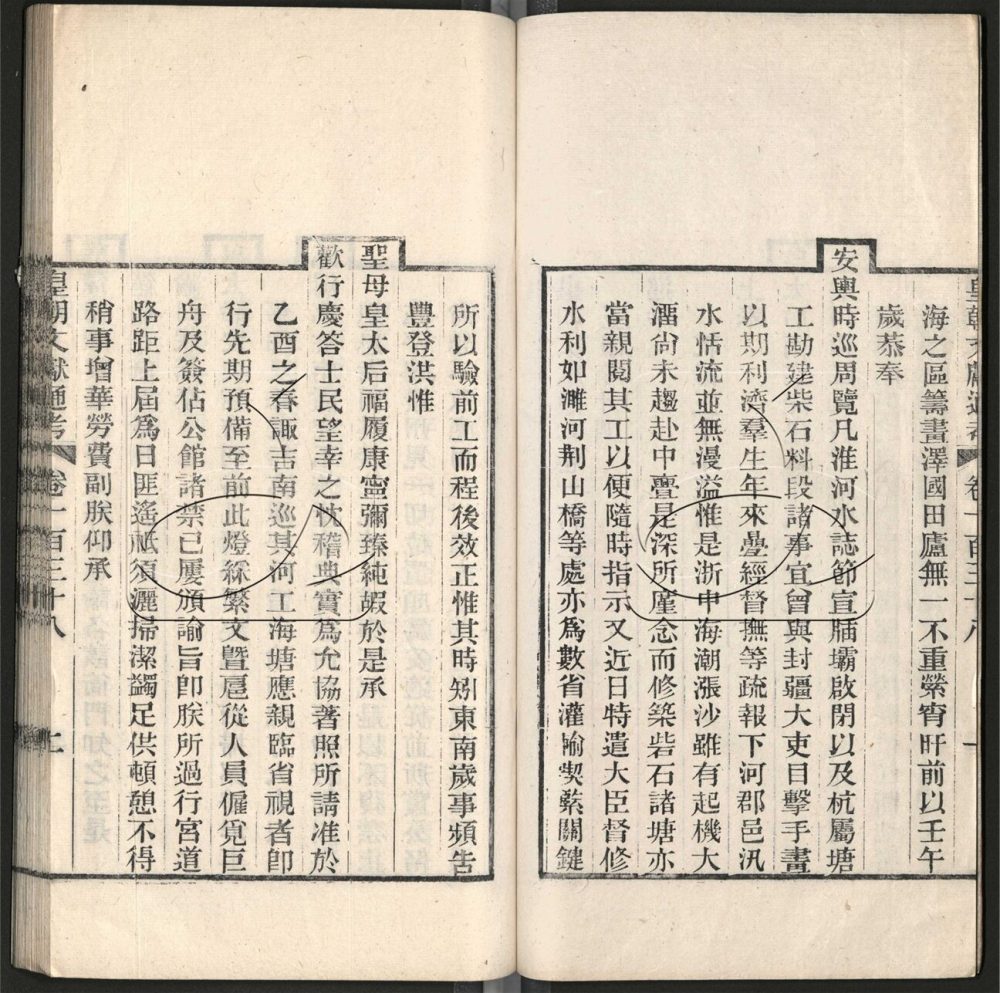 皇朝文獻通考 卷一百三十八 一
海之區籌畫澤國田廬無一不重縈宵旰前以壬午
歲恭奉
安輿時巡周覽凡淮河水誌節宣牐壩啟閉以及杭屬塘
工勘建柴石料段諸事宜曾與封疆大吏目擊手畫
以期利濟羣生年來疊經督撫等疏報下河郡邑汛
水恬流並無漫溢惟是浙中海潮漲沙雖有起機大
溜尙未趨赴中亹是深所廑念而修築砦石諸塘亦
當親閱其工以便隨時指示又近日特遣大臣督修
水利如濉河荆山橋等處亦爲數省灌輸喫緊關鍵
所以驗前工而程後效正惟其時矧東南歲事頻告
豐登洪惟
聖母皇太后福履康寧彌臻純嘏於是承
歡行慶答士民望幸之忱稽典實爲允協著照所請准於
乙酉之春諏吉南巡其河工海塘應親臨省視者卽
行先期預備至前此燈綵繁文暨扈從人員僱覓巨
舟及簽佔公館諸禁已屢頒諭旨卽朕所過行宮道
路距上屆爲日匪遙祗須灑掃潔蠲足供頓憩不得
稍事增華勞費副朕仰承
皇朝文獻通考 卷一百三十八 二